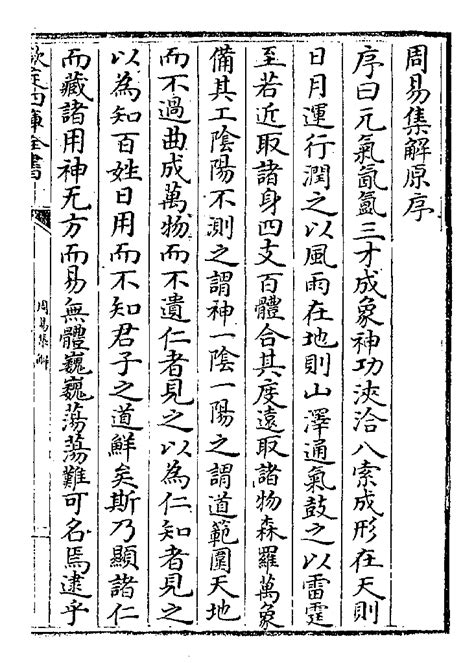 周易集解原序
序曰元氣氤氳三才成象神功浹洽八索成形在天則
日月運行潤之以風雨在地則山澤通氣鼓之以雷霆
至若近取諸身四支百體合其度遠取諸物森羅萬象
備其工陰陽不測之謂神一陰一陽之謂道範圍天地
而不過曲成萬物而不遺仁者見之以為仁知者見之
以為知百姓日用而不知君子之道鮮矣斯乃顯諸仁
而藏諸用神无方而易無體巍巍蕩蕩難可名焉逮乎
欽定四庫全書
周易集解
一